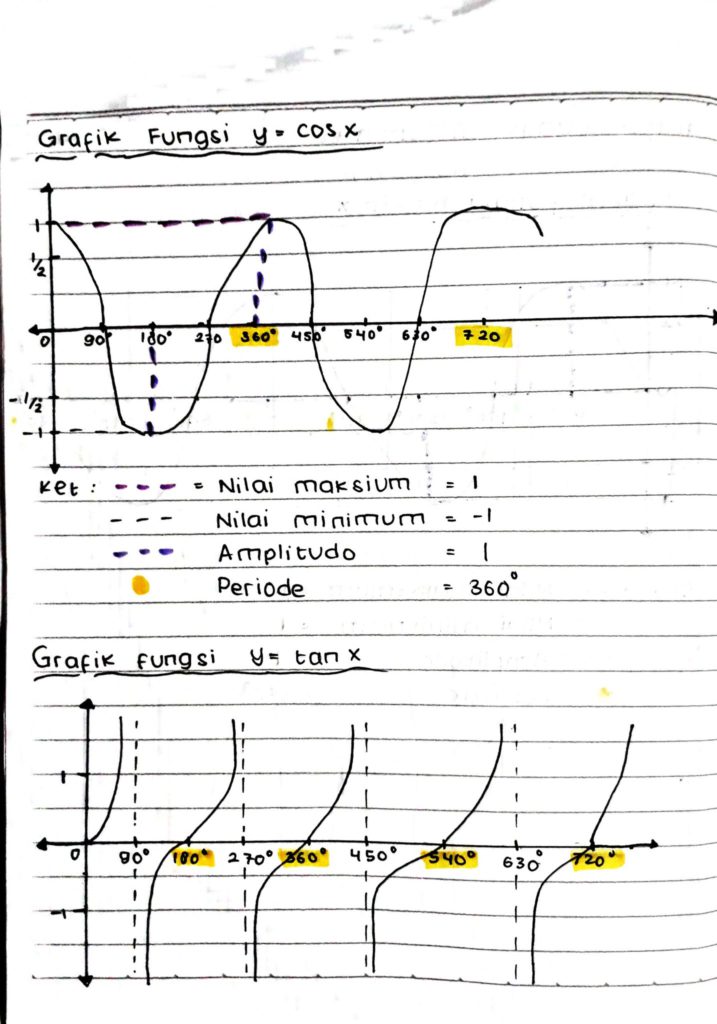 Grafik Fungsi y = cos x
1
1/2
0 90° 180° 270 360° 450° 540° 630° 720
-1/2
-1
Ket : --- = Nilai maksium = 1
--- Nilai minimum = -1
--- Amplitudo = 1
Periode = 360°
Grafik fungsi y = tan x
1
0 90° 180° 270° 360° 450° 540° 630° 720°
-1